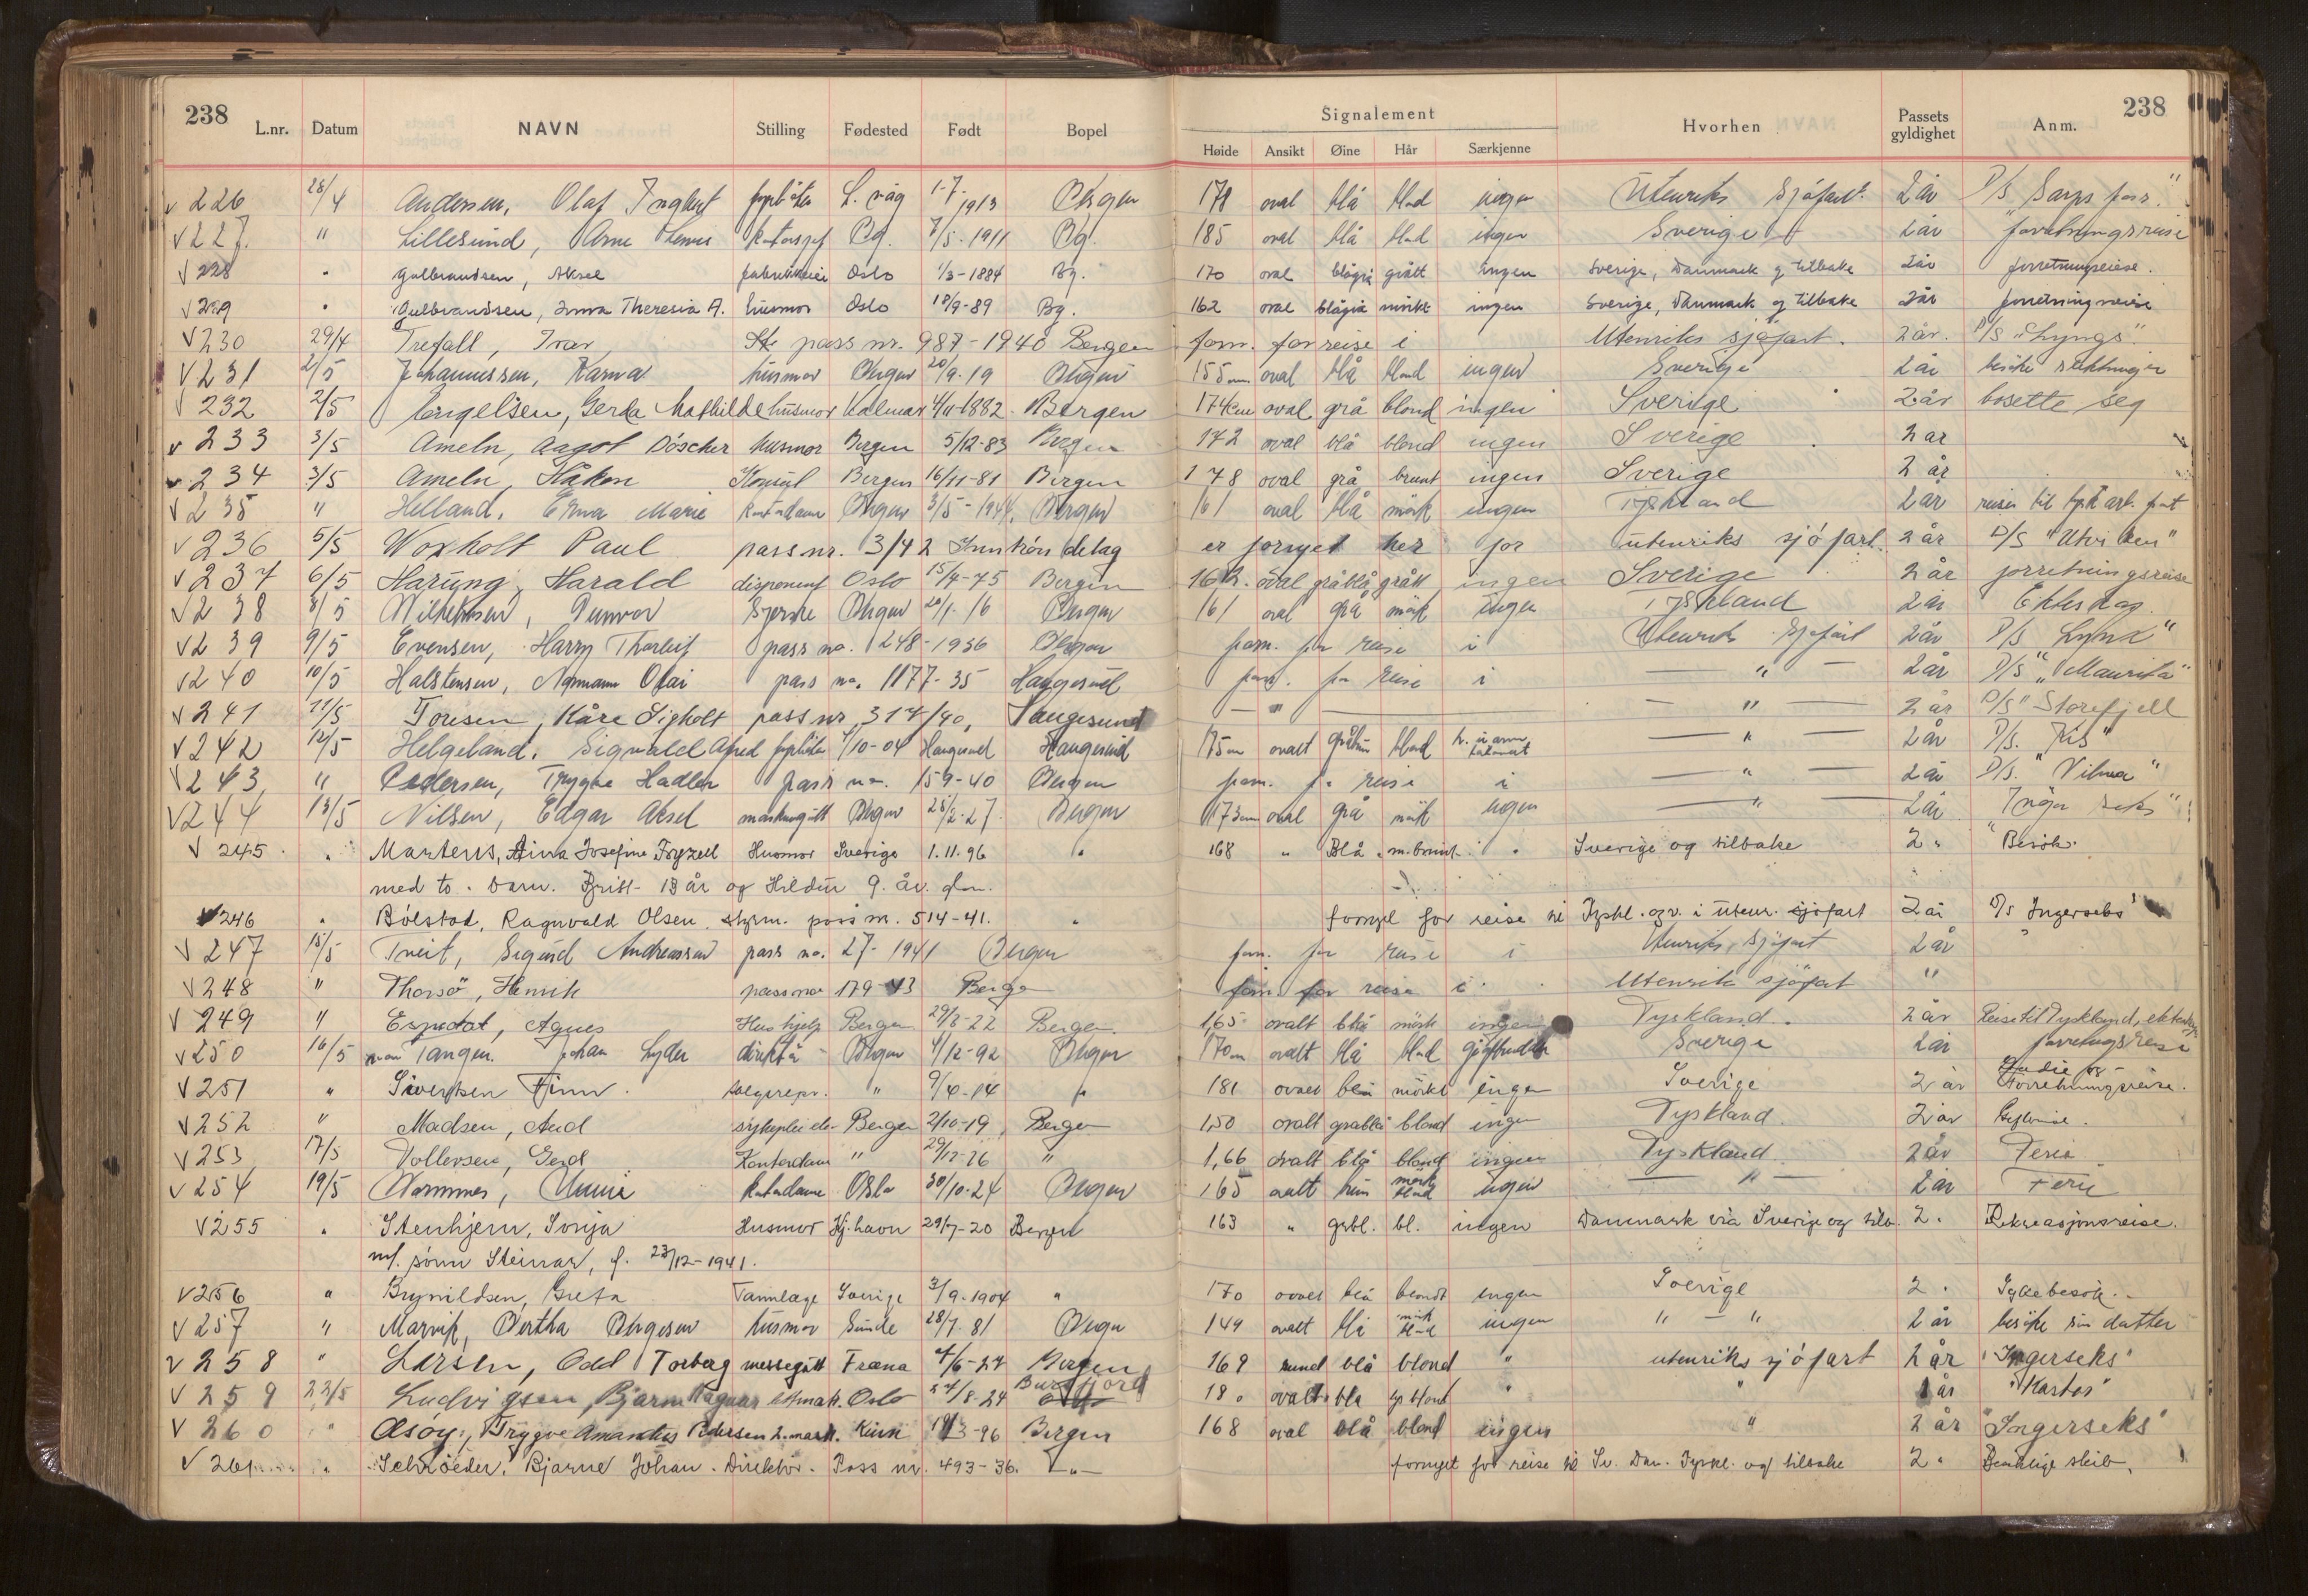 238
238
L.nr. Datum NAVN Stilling Fødested Født Bopel
Signalement
Høide Ansikt Øine Hår Særkjenne Hvorhen Passets gyldighet Anm.
v 226 28/4 Andersen, Olaf Inglert fyrbøter 1-7-1913 Bergen 178 oval blå blond ingen Utenriks Sjøfart 2 år D/S
v 227 " Lillesund, Arne Bg. 7/5-1911 Bg. 185 oval blå blond ingen Sverige 2 år forretningsreise
v 228 " Gulbrandsen, Aksel Oslo 1/3-1884 Bg. 170 oval blågrå grått ingen Sverige, Danmark og tilbake 2 år forretningsreise.
v 229 " Gulbrandsen, Inna Theresia A. husmor Oslo 18/9-89 Bg. 162 oval blågrå mørkt ingen Sverige, Danmark og tilbake 2 år forretningsreise
v 230 29/4 Trefall, Ivar pass nr. 987-1940 Bergen forn. for reise i Utenriks sjøfart. 2 år. D/S "Lyngs".
v 231 2/5 Johannessen, Karna husmor Bergen 20/9-19 Bergen 155 cm oval blå blond ingen Sverige 2 år besøke slektninger
v 232 2/5 Engelsen, Gerda Mathilde husmor Kalmar 4/11-1882 Bergen 174 cm oval grå blond ingen Sverige 2 år bosette seg
v 233 3/5 Ameln, Aagot Döscher husmor Bergen 5/12-83 Bergen 172 oval blå blond ingen Sverige 2 år
v 234 3/5 Ameln, Håkon Konsul Bergen 16/11-81 Bergen 178 oval grå brunt ingen Sverige 2 år
v 235 " Helland, Erna Marie kontordame Bergen 3/5-1944. Bergen 161 oval blå mørk ingen Tyskland 2 år reiser til tysk arb.
v 236 5/5 Woxholt Paul pass nr. 3/42 Inntröndelag er fornyet her for utenriks sjøfart. 2 år D/S "Utviken"
v 237 6/5 Harung, Harald disponent Oslo 15/4-75 Bergen 162. oval gråblå grått ingen Sverige 2 år forretningsreise
v 238 8/5 Wilhelmsen, Gunvor Bergen 20/1-16 Bergen 161 oval grå mørk ingen Tyskland 2 år Ekteskap.
v 239 9/5 Evensen, Harry Thorleif pass no. 248-1936 Bergen forn. for reise i Utenriks Sjøfart 2 år D/S "Lynx"
v 240 10/5 Halstensen, Normann Olai pass no. 1177-35 Haugesund forn. for reise i — " — 2 år D/S "Maurita"
v 241 11/5 Toresen, Kåre Sigholt pass nr. 317/40, Haugesund — " — — " — 2 år D/S "Storefjell
v 242 12/5 Helgeland, Sigvald Alfred fyrbøter 4/10-04 Haugesund Haugesund 175 cm ovalt blond h. arm tatovert — " — 2 år D/S. "Kis"
v 243 " Pedersen, Trygve Hadler pass no. 159-40 Bergen forn. for reise i — " — 2 år D/S. "Vilma"
v 244 13/5 Nilsen, Edgar Aksel Bergen 28/2-27 Bergen 173 cm oval grå mørk ingen — " — 2 år "Inger seks"
v 245 " Martens, Aina Josefine Fryxell Husmor Sverige 1.11.96 " 168 " Blå m. brunt " Sverige og tilbake 2 " Besøk.
med to barn. Britt 13 år og Hildur 9. år.
v 246 " Bölstad, Ragnvald Olsen, styrm. pass nr. 514-41. " fornyet for reise til Tyskl. og v. i utenr. sjøfart 2 år D/S Ingerseks
v 247 15/5 Tveit, Sigurd Andreassen pass no. 27-1941 Bergen forn. for reise i Utenriks sjøfart 2 år
v 248 " Thorsø, Henrik pass no 179-43 Bergen forn. for reise i Utenriks sjøfart "
v 249 " Espedal, Agnes Hushjelp Bergen 29/8-22 Bergen. 1,65 ovalt blå mørk ingen Tyskland. 2 år Reise til Tyskland,
v 250 16/5 von Tangen. Johan Lyder direktør Bergen 4/12-92 Bergen 170 cm ovalt blå blond Sverige 2 år forretningsreise
v 251 " Sivertsen Finn. salgsrepr. " 9/4-14 " 181 ovalt blå mørkt ingen Sverige 2 år Studie og Forretningsreise.
v 252 " Madsen, Aud Bergen 2/10-19, Bergen 1,50 ovalt gråblå blond ingen Tyskland. 2 år
v 253 17/5 Vollersen, Gerd Kontordame " 29/12-26 " 1,66 ovalt blå blond ingen Tyskland 2 år Ferie
v 254 19/5 Oslo 30/10-24 Bergen 165 ovalt brun mørk blond ingen — " — 2 år Ferie
v 255 " Stenhjem, Sonja Husmor Kj.havn 29/7-20 Bergen 163 " grbl. bl. ingen Danmark via Sverige og tilb. 2 " Rekreasjonsreise.
m/. sønn Steinar, f. 23/12-1941.
v 256 " Brynildsen, Greta Tannlege Sverige 3/9-1904 " 170 ovalt blå blondt ingen Sverige 2 " Sykebesøk.
v 257 " Marvik, Bertha Bergesen husmor Sunde 28/7-81 Bergen 149 ovalt blå mørk blond ingen " — " 2 år besøke sin datter
v 258 " Larsen, Odd Torberg messegutt Fræna 4/6-27 Bergen 169 rund blå blond " utenriks sjøfart 2 år "Ingerseks"
v 259 22/5 Ludvigsen, Bjarne Ragnar Oslo 24/8-24 Burfjord 180 ovalt blå blond " " 1 år "Karlos"
v 260 " Asöy, Trygve Amandus Pedersen 2. mask. Kinn 19/3-96 Bergen 168 oval blå blond ingen " 2 år "Ingerseks"
v 261 " Schröeder, Bjarne Johan. Direktør. Pass nr. 493-36. — " — fornyet for reise til Sv. Dan. Tyskl. og tilbake 2 "